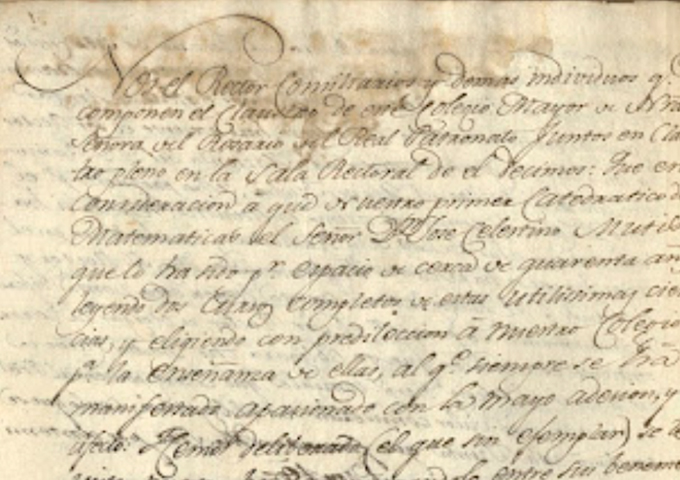 Nos el Rector Consiliarios y demas individuos q.
componen el Claustro de este Colegio Mayor de Ntra
Señora del Rosario del Real Patronato Juntos en Clau
tro pleno en la Sala Rectoral de el decimos: Que en
consideracion à que de nuestro primer Catedratico de
Matematicas el Señor Dr. Jose Celestino Mutis
que lo ha sido pr. espacio de cerca de quarenta añ
leyendo dos Cursos completos de estas utilisimas cien
cias, y eligiendo con predileccion à nuestro Colegio
pa. la enseñanza de ellas, al qe. siempre se ha
manifestado apasionado con la mayo adesion, y
afecto. Hemos deliberado (el que sin exemplar) se
entre sus beneme